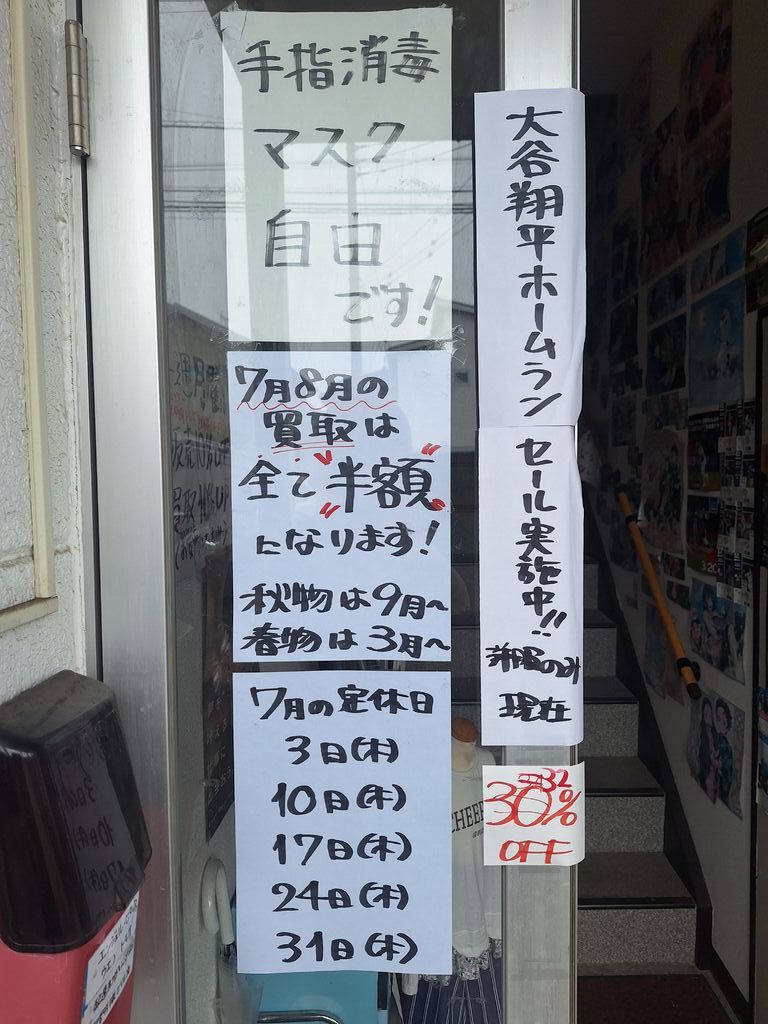 手指消毒
マスク
自由
です!
7月8月の
買取は
全て"半額"
になります!
秋物は9月~
春物は3月~
7月の定休日
3日(木)
10日(木)
17日(木)
24日(木)
31日(木)
大谷翔平ホームラン
セール実施中!!
洋服のみ
現在
32
30%
OFF
CHEER